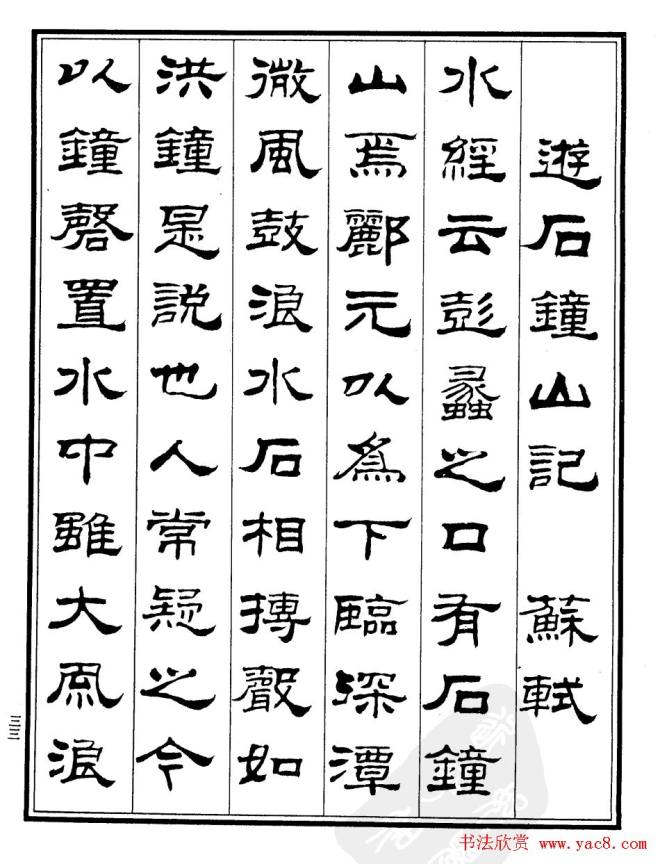 遊石鐘山記 蘇軾
水經云彭蠡之口有石鐘
山焉酈元以為下臨深潭
微風鼓浪水石相搏聲如
洪鐘是說也人常疑之今
以鐘磬置水中雖大風浪
三三
书法欣赏 www.yac8.com